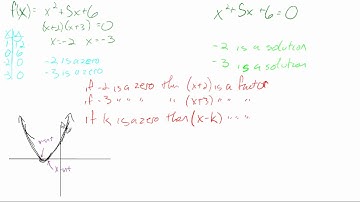 f(x) = x²+5x+6
(x+2)(x+3)=0
x=-2 x=-3
-2 is a zero
-3 is a zero
x²+5x+6=0
-2 is a solution
-3 is a solution
if -2 is a zero then (x+2) is a factor
if -3 " " " " (x+3) " " "
if k is a zero then (x-k) " " "
x-int
x-int